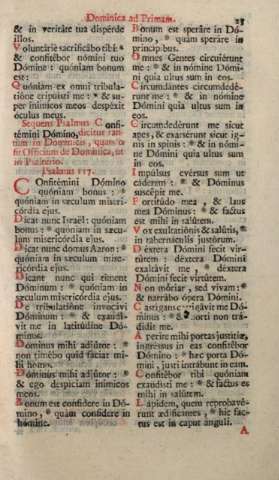 Dominica ad Primam.
& in veritáte tua dispérde
illos.
Voluntárie sacrificábo tibi: *
& confitébor nómini tuo
Dómine: quóniam bonum
est:
Quóniam ex omni tribula-
tióne eripuísti me: * & su-
per inimícos meos despéxit
óculus meus.
Sequens Psalmus Confi-
témini Dómino, dicitur tan-
tum in Dominicis, quando
fit Officium de Dominica, ut
in Psalterio.
Psalmus 117.
Confitémini Dómino
quóniam bonus: *
quóniam in sæculum miseri-
córdia ejus.
Dicat nunc Israel: quóniam
bonus: * quóniam in sæcu-
lum misericórdia ejus.
Dicat nunc domus Aaron: *
quóniam in sæculum miseri-
córdia ejus.
Dicant nunc qui timent
Dóminum: * quóniam in
sæculum misericórdia ejus.
De tribulatióne invocávi
Dóminum: * & exaudí-
vit me in latitúdine Dó-
minus.
Dóminus mihi adjútor: *
non timébo quid fáciat mi-
hi homo.
Dóminus mihi adjútor: *
& ego despíciam inimícos
meos.
Bonum est confídere in Dó-
mino, * quam confídere in
hómine.
Bonum est speráre in Dó-
mino, * quam speráre in
princípibus.
Omnes Gentes circuiérunt
me: * & in nómine Dómi-
ni quia ultus sum in eos.
Circumdántes circumdedé-
runt me: * & in nómine
Dómini quia ultus sum
in eos.
Circumdedérunt me sicut
apes, & exarsérunt sicut ig-
nis in spinis: * & in nómi-
ne Dómini quia ultus sum
in eos.
Impúlsus evérsus sum ut
cáderem: * & Dóminus
suscépit me.
Fortitúdo mea, & laus
mea Dóminus: * & factus
est mihi in salútem.
Vox exultatiónis & salútis, *
in tabernáculis justórum.
Déxtera Dómini fecit vir-
tútem: déxtera Dómini
exaltávit me, * déxtera
Dómini fecit virtútem.
Non móriar, sed vivam: *
& narrábo ópera Dómini.
Castígans castigávit me Dó-
minus: * & morti non trá-
didit me.
Aperíte mihi portas justítiæ,
ingréssus in eas confitébor
Dómino: * hæc porta Dó-
mini, justi intrábunt in eam.
Confitébor tibi quóniam
exaudísti me: * & factus es
mihi in salútem.
Lápidem, quem reprobavé-
runt ædificántes, * hic fac-
tus est in caput ánguli.
A